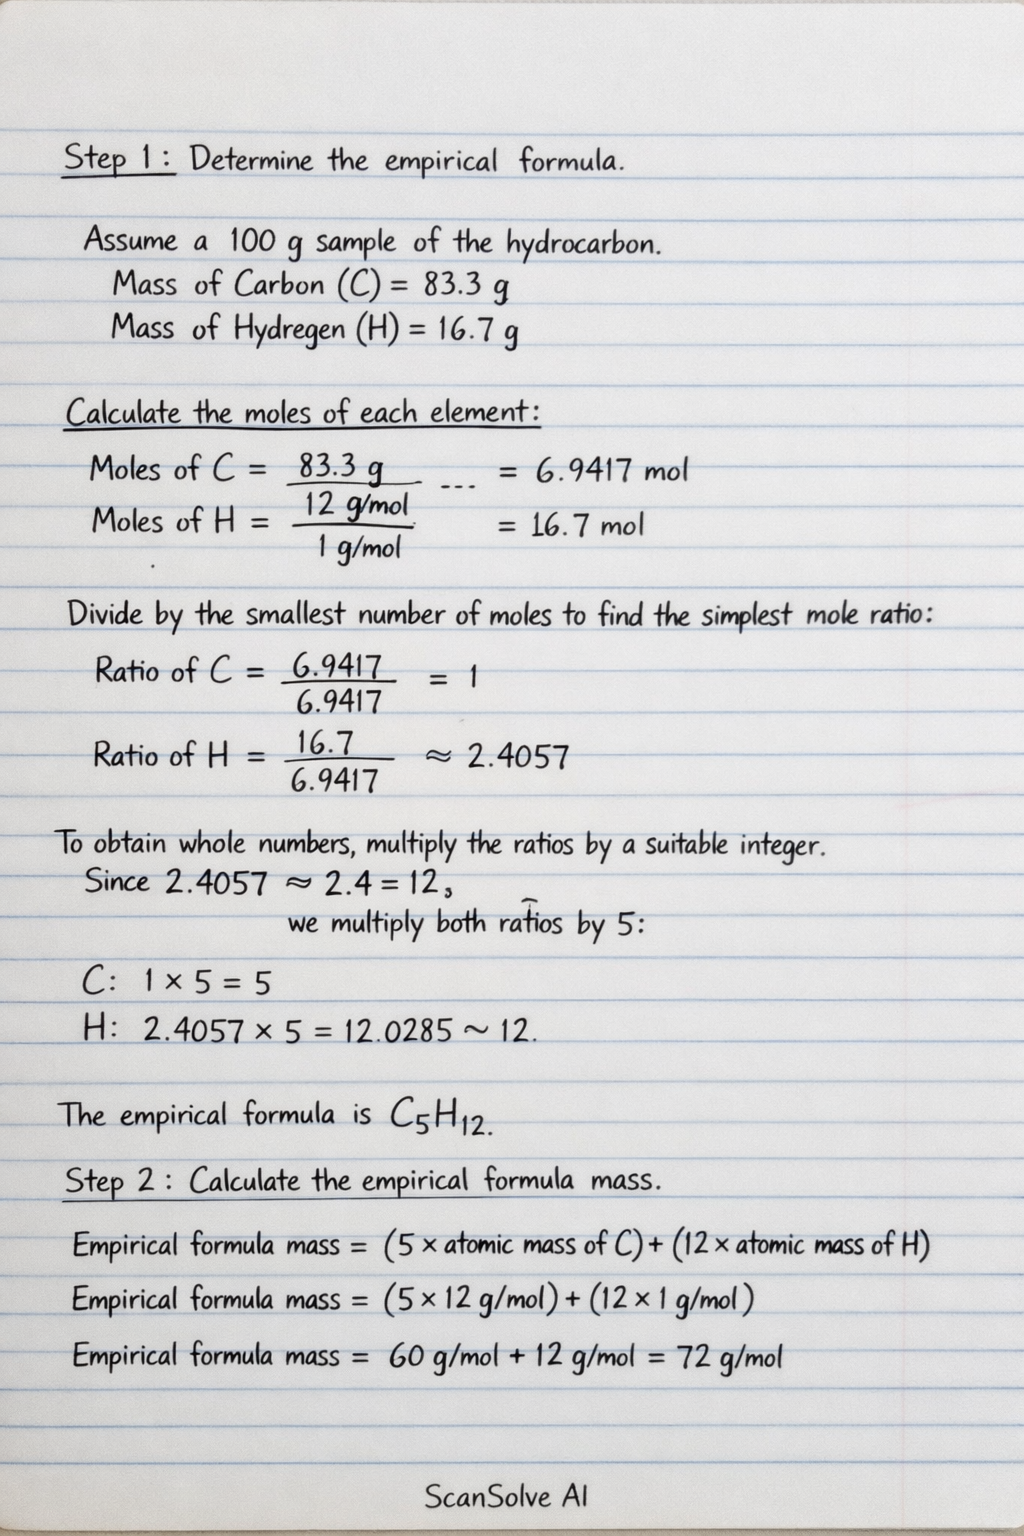 Step 1: Determine the empirical formula.
Assume a 100 g sample of the hydrocarbon.
Mass of Carbon (C) = 83.3 g
Mass of Hydregen (H) = 16.7 g
Calculate the moles of each element:
Moles of C = 83.3 g / 12 g/mol --- = 6.9417 mol
Moles of H = / 1 g/mol = 16.7 mol
Divide by the smallest number of moles to find the simplest mole ratio:
Ratio of C = 6.9417 / 6.9417 = 1
Ratio of H = 16.7 / 6.9417 ≈ 2.4057
To obtain whole numbers, multiply the ratios by a suitable integer.
Since 2.4057 ≈ 2.4 = 12,
we multiply both ratios by 5:
C: 1 × 5 = 5
H: 2.4057 × 5 = 12.0285 ~ 12.
The empirical formula is C₅H₁₂.
Step 2: Calculate the empirical formula mass.
Empirical formula mass = (5 × atomic mass of C) + (12 × atomic mass of H)
Empirical formula mass = (5 × 12 g/mol) + (12 × 1 g/mol)
Empirical formula mass = 60 g/mol + 12 g/mol = 72 g/mol
ScanSolve AI